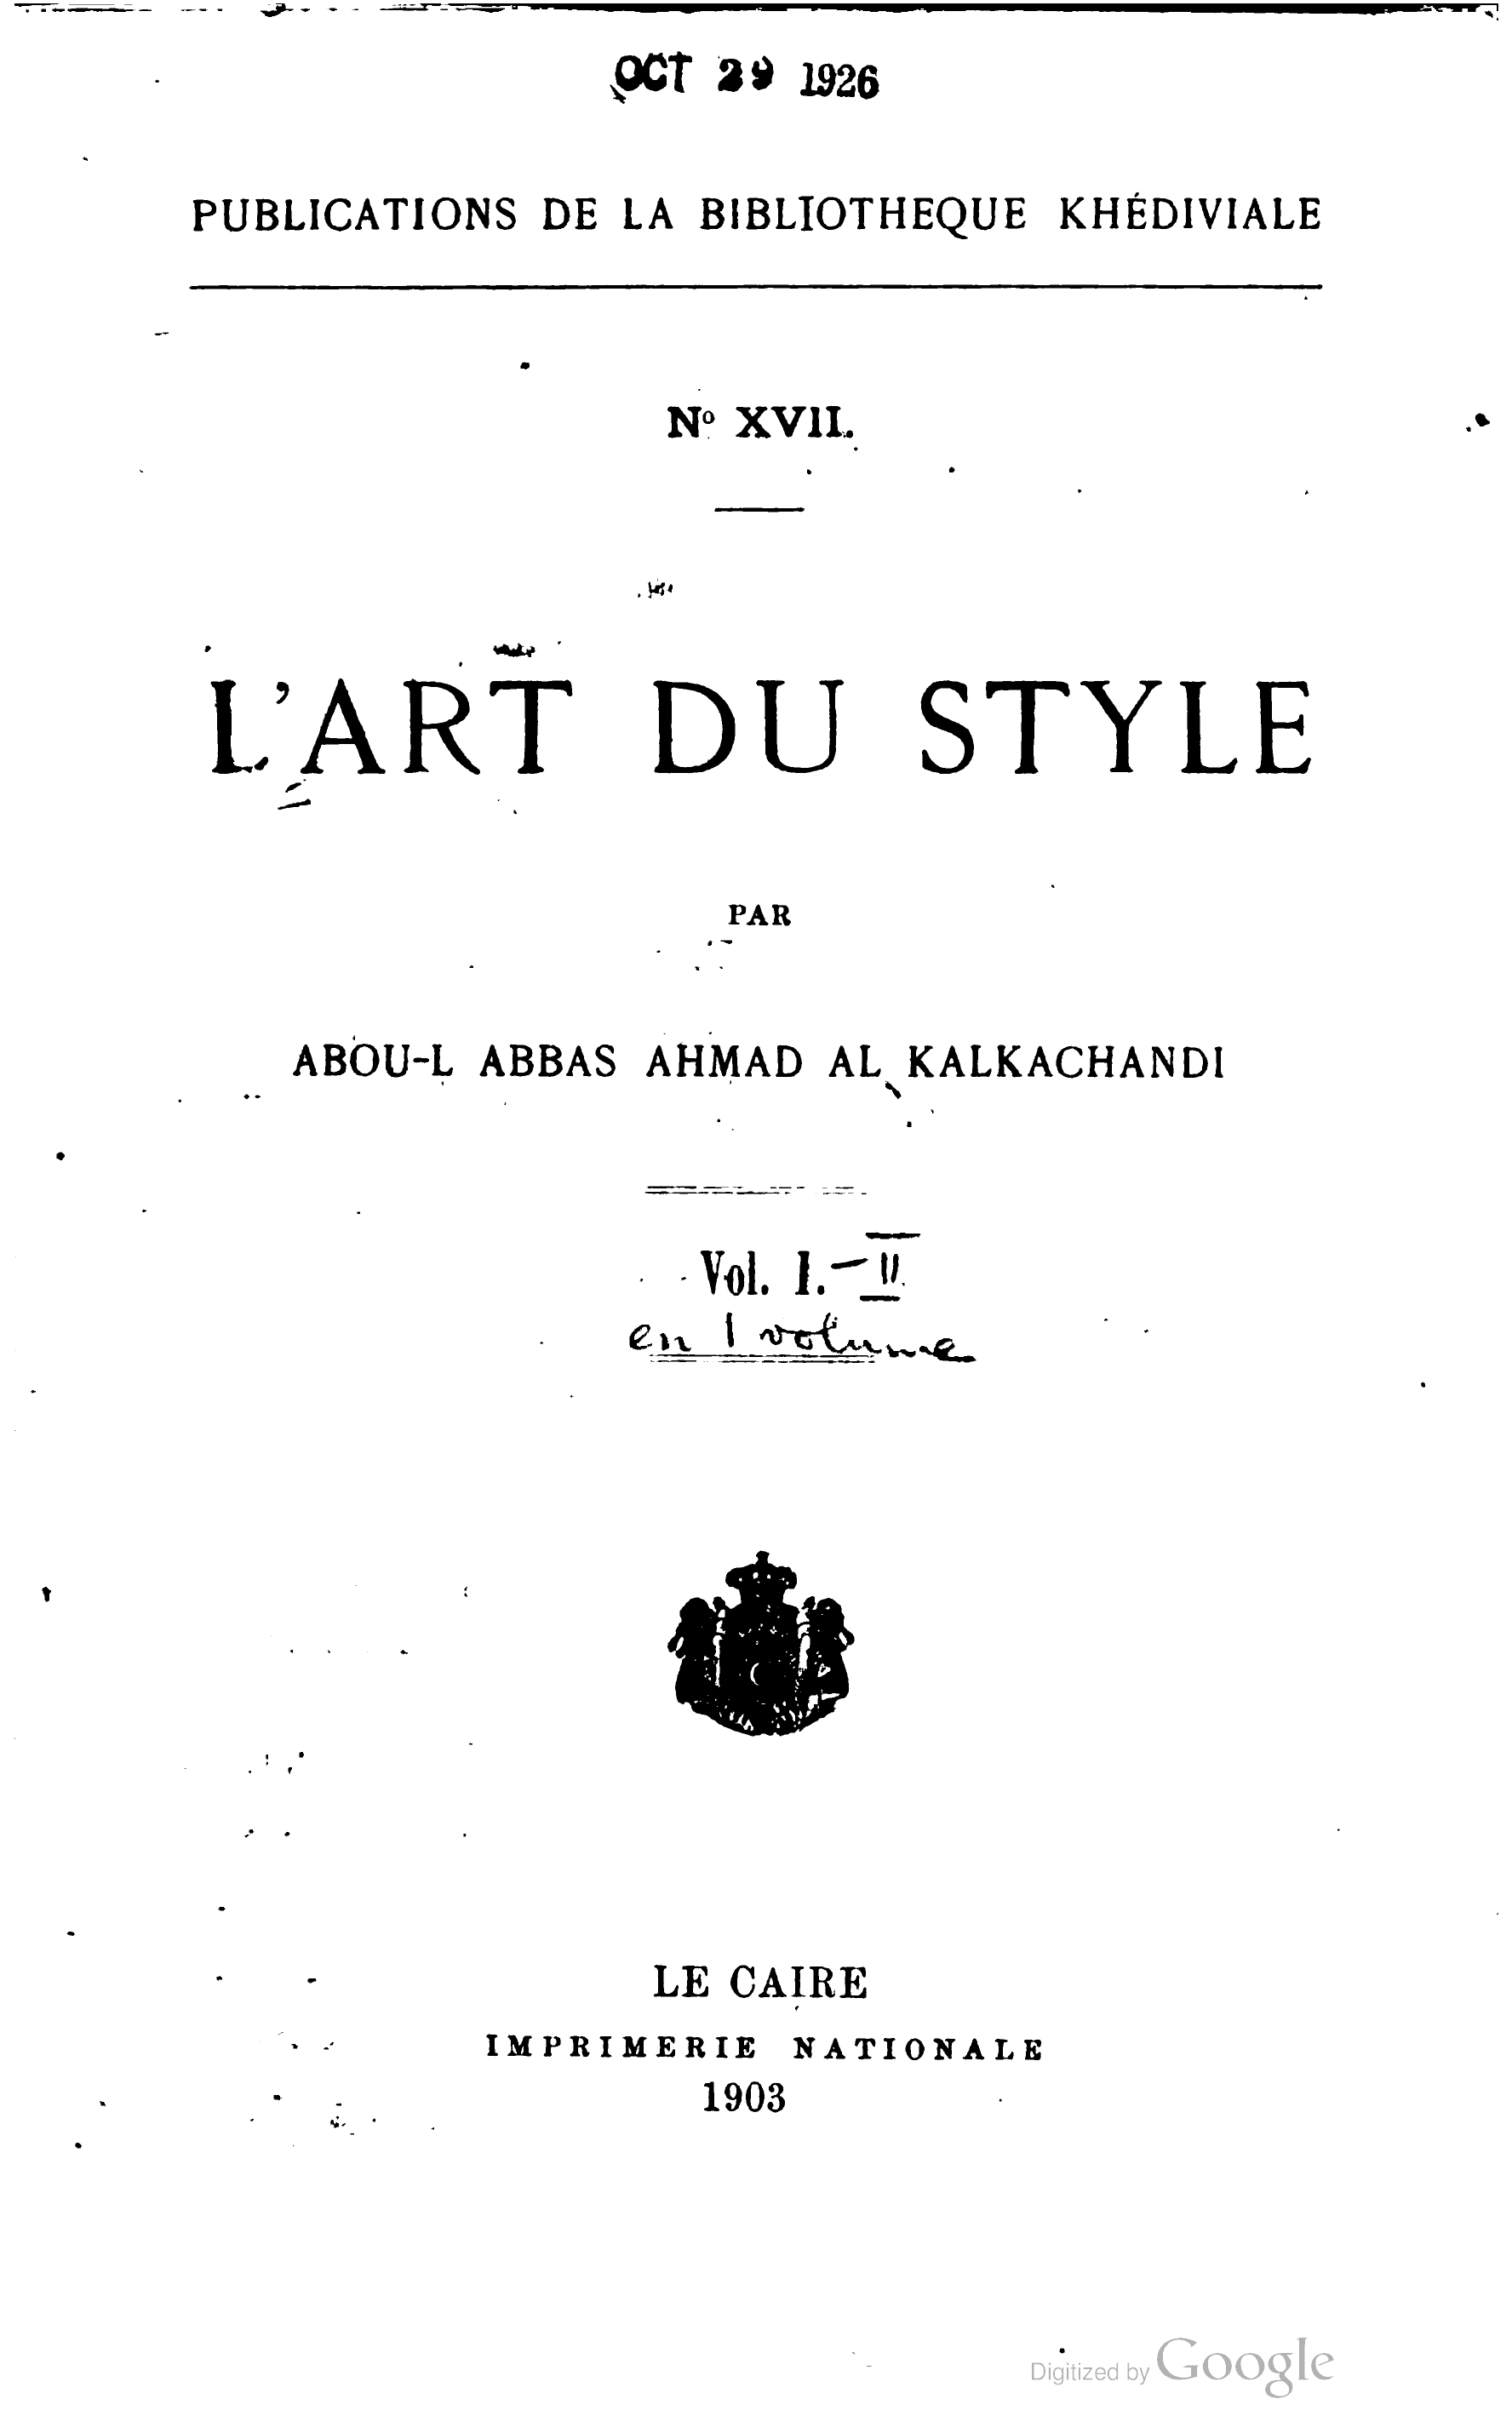 OCT 29 1926
PUBLICATIONS DE LA BIBLIOTHEQUE KHÉDIVIALE
Nº XVII.
L'ART DU STYLE
PAR
ABOU-L ABBAS AHMAD AL KALKACHANDI
Vol. I. — II
en 1 volume
LE CAIRE
IMPRIMERIE NATIONALE
1903
Digitized by Google